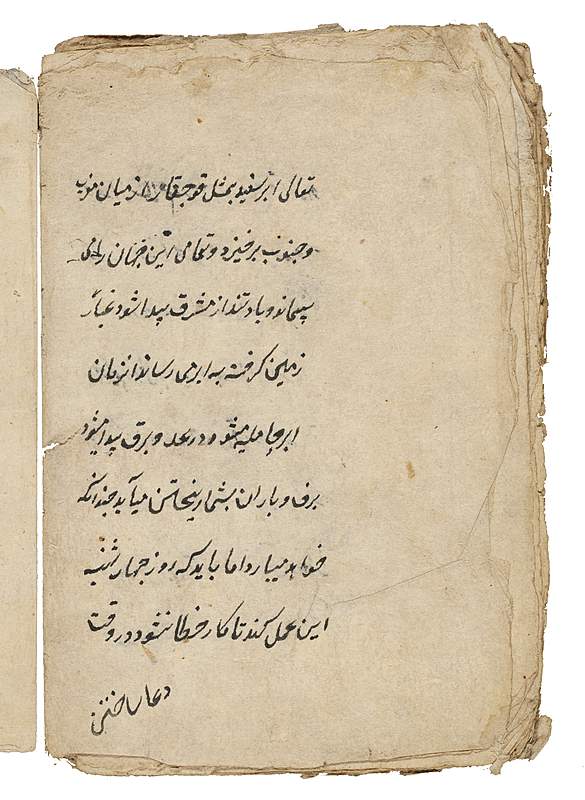 تعالی ابر سفید بمثل قوچقار از میان مغرب
و جنوب برخیزد و تمامی این جهان را می
پیماند و باد تند از مشرق پیدا شود غبار
زمین گرفته به ابر می رساند از زمان
ابر حامله میشود و رعد و برق پیدا میشود
برف و باران بشمار ریختن میآید چندانکه
خواهد میبارد اما باید که روز چهارشنبه
این عمل کند تا کار خطا نشود در وقت
دعا ساختن